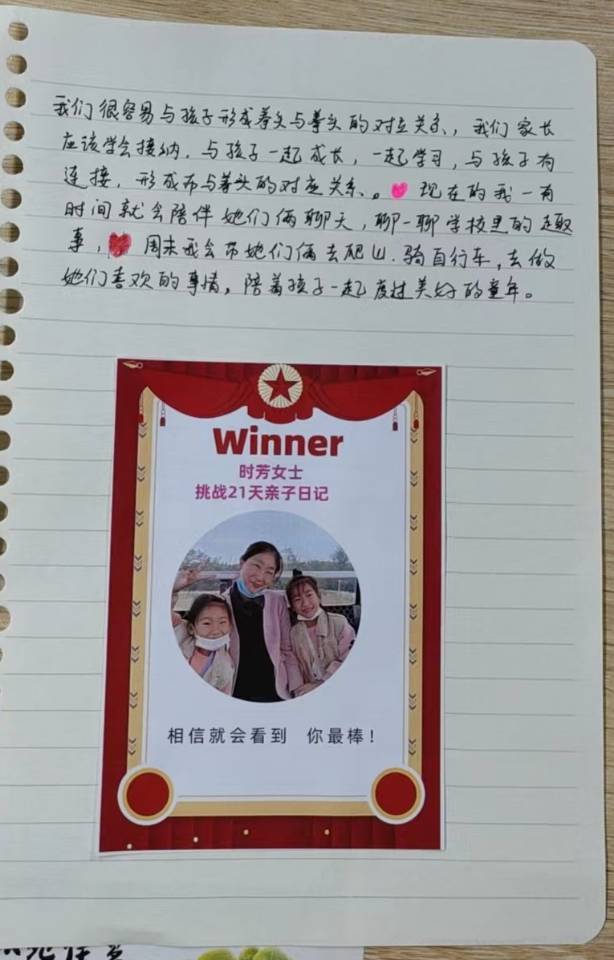 我们很容易与孩子形成拳头与拳头的对立关系，我们家长
应该学会接纳，与孩子一起成长，一起学习，与孩子有
连接，形成布与拳头的对应关系。现在的我一有
时间就会陪伴她们俩聊天，聊一聊学校里的趣
事，周末我会带她们俩去爬山、骑自行车，去做
她们喜欢的事情，陪着孩子一起度过美好的童年。
Winner
时芳女士
挑战21天亲子日记
相信就会看到 你最棒！